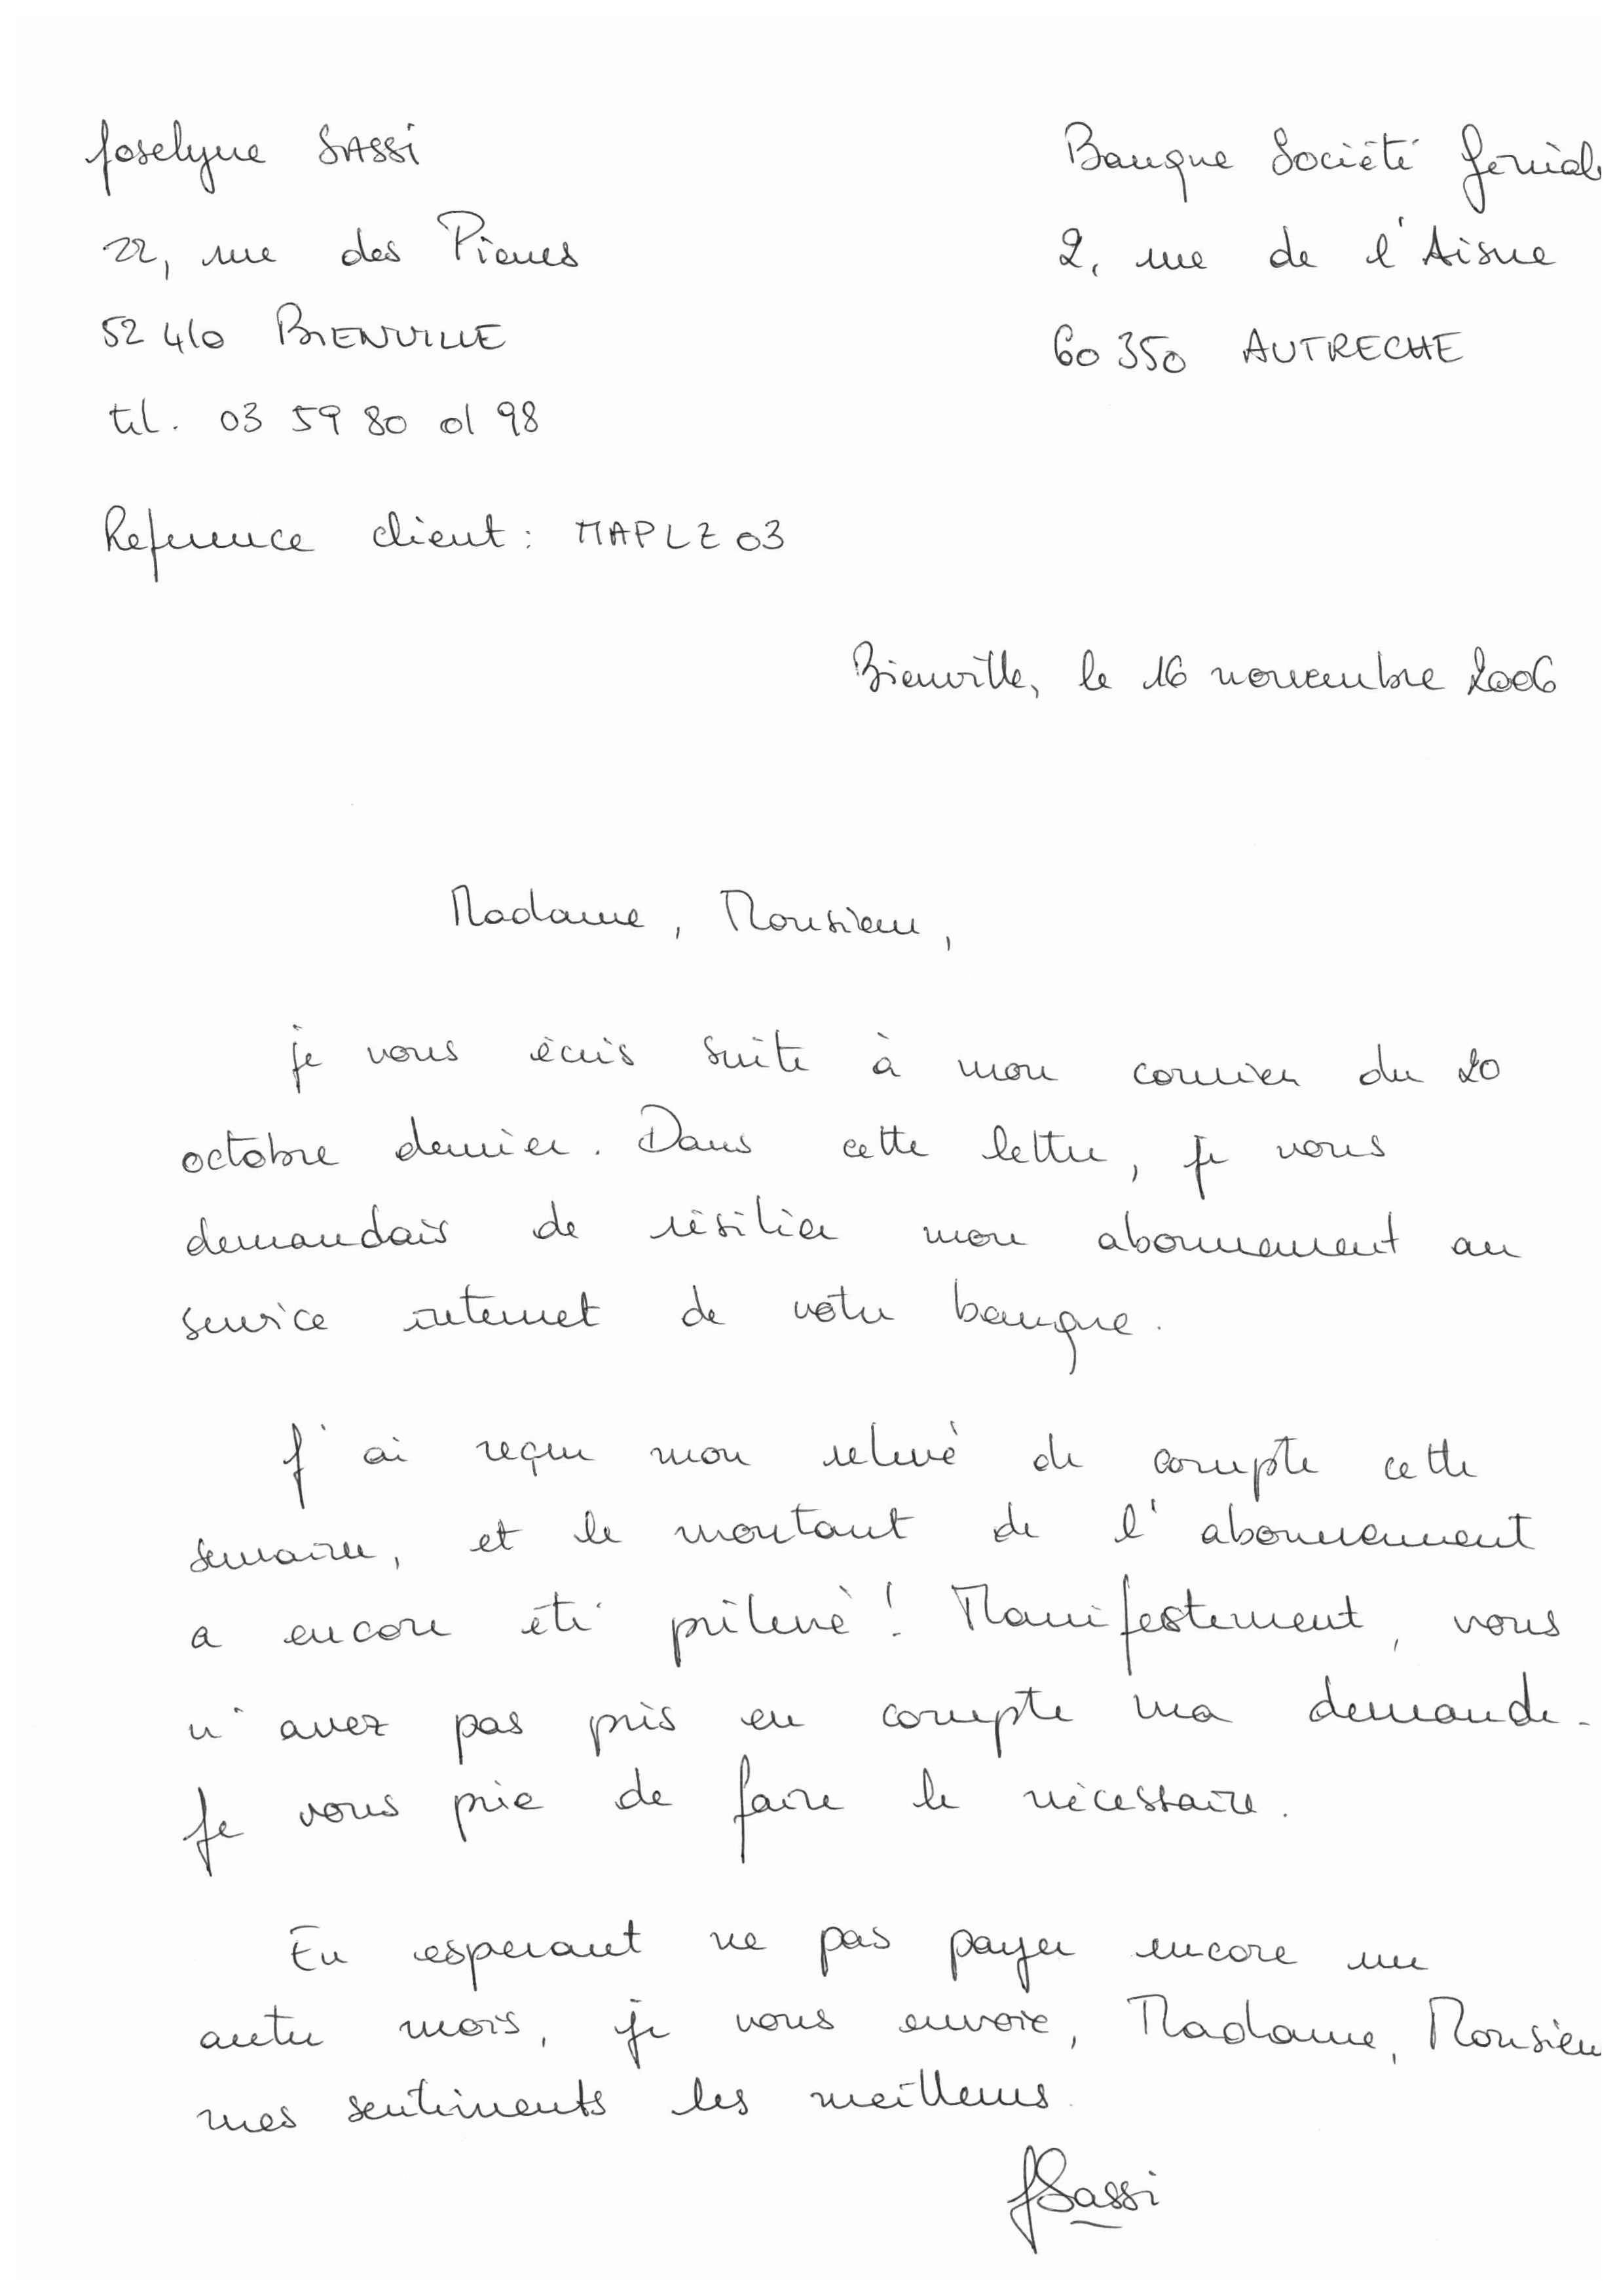 Joselyne SASSi
22, rue des Pierres
52 410 BIENVILLE
tél. 03 59 80 01 98
Banque Société Génial
2, rue de l'Aisne
60 350 AUTRECHE
Reference client : MAPLZ 03
Bienville, le 16 novembre 2006
Madame, Monsieur,
je vous écris suite à mon courrier du 20
octobre dernier. Dans cette lettre, je vous
demandais de résilier mon abonnement au
service internet de votre banque.
J'ai reçu mon relevé de compte cette
semaine, et le montant de l'abonnement
a encore été prélevé ! Manifestement, vous
n'avez pas pris en compte ma demande.
Je vous prie de faire le nécessaire.
En esperant ne pas payer encore un
autre mois, je vous envoie, Madame, Monsieu
mes sentiments les meilleurs.
JSassi